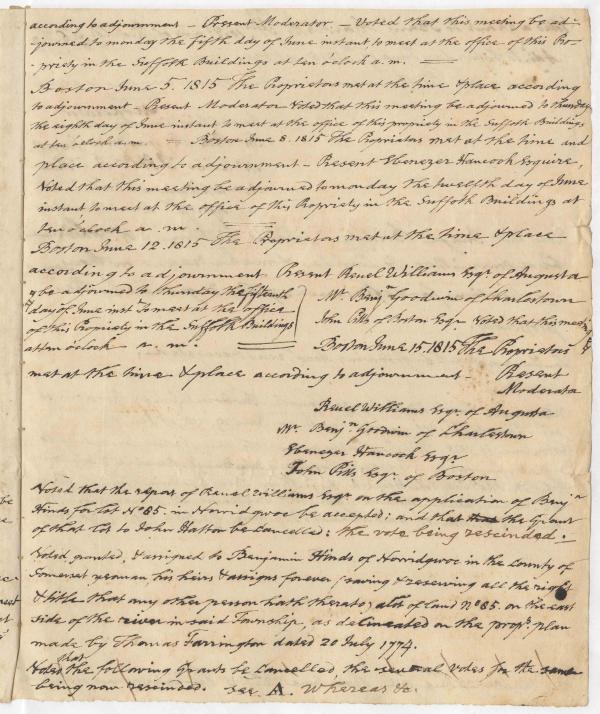 according to adjournment – Present Moderator – Voted that this meeting be ad-
-journed to monday the fifth day of June instant to meet at the office of this Pro-
-priety in the Suffolk Buildings at ten oclock a. m.
Boston June 5. 1815 The Proprietors met at the time & place according
to adjournment – Present Moderator Voted that this meeting be adjourned to thursday
the eighth day of June instant to meet at the office of this propriety in the Suffolk Buildings
at ten oclock a.m. Boston June 8. 1815 The Proprietors met at the time and
place according to adjournment – Present Ebenezer Hancock Esquire,
Voted that this meeting be adjourned to monday the twelfth day of June
instant to meet at the office of this Propriety in the Suffolk Buildings at
ten oclock a. m.
Boston June 12. 1815 The Proprietors met at the time & place
according to adjournment – Present Reuel Williams Esqr. of Augusta
Mr. Benjn. Goodwin of Charlestown
John Pitts of Boston Esqr. Voted that this meeting
be adjourned to thursday the fifteenth
day of June inst. to meet at the office
of this Propriety in the Suffolk Buildings
at ten oclock a. m.
Boston June 15. 1815 The Proprietors
met at the time & place according to adjournment – Present
Moderator
Reuel Williams Esqr. of Augusta
Mr. Benjn. Goodwin of Charlestown
Ebenezer Hancock Esqr.
John Pitts Esqr. of Boston
Voted that the report of Reuel Williams Esqr. on the application of Benjn
Hinds for lot No. 85. in Norridgwoc be accepted; and that the Grant
of that lot to John Hatton be cancelled; the vote being rescinded.
Voted, granted, & assigned to Benjamin Hinds of Norridgwoc in the county of
Somerset yeoman, his heirs & assigns forever (saving & reserving all the right
& title that any other person hath thereto) a lot of land No. 85. on the east
side of the river in said Township, as delineated on the propr. plan
made by Thomas Farrington dated 20 July 1774.
Voted that the following Grants be cancelled, the several votes for the same
being now rescinded. see A. Whereas &c.